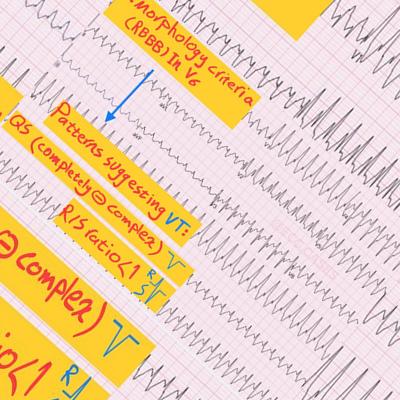 morphology criteria
(RBBB) In V6
Patterns suggesting VT:
QS (completely ⊖ complex)
R/S ratio<1 R
S
⊖ complex)
io<1 R